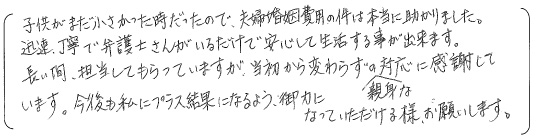 子供がまだ小さかった時だったので、夫婦婚姻費用の件は本当に助かりました。
迅速、丁寧で弁護士さんがいるだけで安心して生活する事が出来ます。
長い間、担当してもらっていますが、当初から変わらずの親身な対応に感謝して
います。今後も私にプラス結果になるよう、御力に
なっていただける様、お願いします。